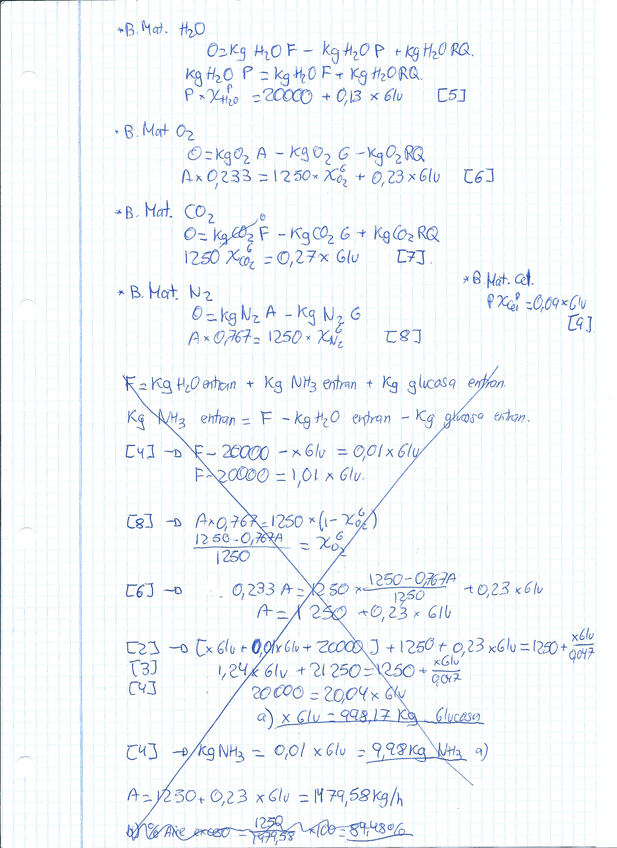 *B. Mat. H2O
0=Kg H2O F - Kg H2O P + kg H2O RQ.
Kg H2O P = Kg H2O F + Kg H2O RQ.
P × X^P_H2O = 20000 + 0,13 × Glu [5]
* B. Mat O2
0=Kg O2 A - Kg O2 G - Kg O2 RQ
A × 0,233 = 1250 × X^G_O2 + 0,23 × Glu [6]
*B. Mat. CO2
0= Kg CO2 F - Kg CO2 G + Kg CO2 RQ
0
1250 X^G_CO2 = 0,27 × Glu [7].
* B. Mat. Cel.
P X^P_Cel = 0,09 × Glu
[9]
* B. Mat. N2
0=Kg N2 A - Kg N2 G
A × 0,767 = 1250 × X^G_N2 [8]
F = Kg H2O entran + Kg NH3 entran + Kg glucosa entran.
Kg NH3 entran = F - Kg H2O entran - Kg glucosa entran.
[4] → F - 20000 - xGlu = 0,01 × Glu
F - 20000 = 1,01 × Glu.
[8] → A × 0,767 = 1250 × (1 - X^G_O2)
(1250 - 0,767A)/1250 = X^G_O2
[6] → 0,233 A = 1250 × (1250 - 0,767A)/1250 + 0,23 × Glu
A = 1250 + 0,23 × Glu
[2] → [xGlu + 0,01xGlu + 20000] + 1250 + 0,23 × Glu = 1250 + xGlu/0,047
[3] 1,24 × Glu + 21250 = 1250 + xGlu/0,047
[4] 20000 = 20,04 × Glu
a) xGlu = 998,17 Kg Glucosa
[4] → Kg NH3 = 0,01 × Glu = 9,98 Kg NH3 a)
A = 1250 + 0,23 × Glu = 1479,58 Kg/h
b) % Aire exceso = 1250/1479,58 × 100 = 84,48%